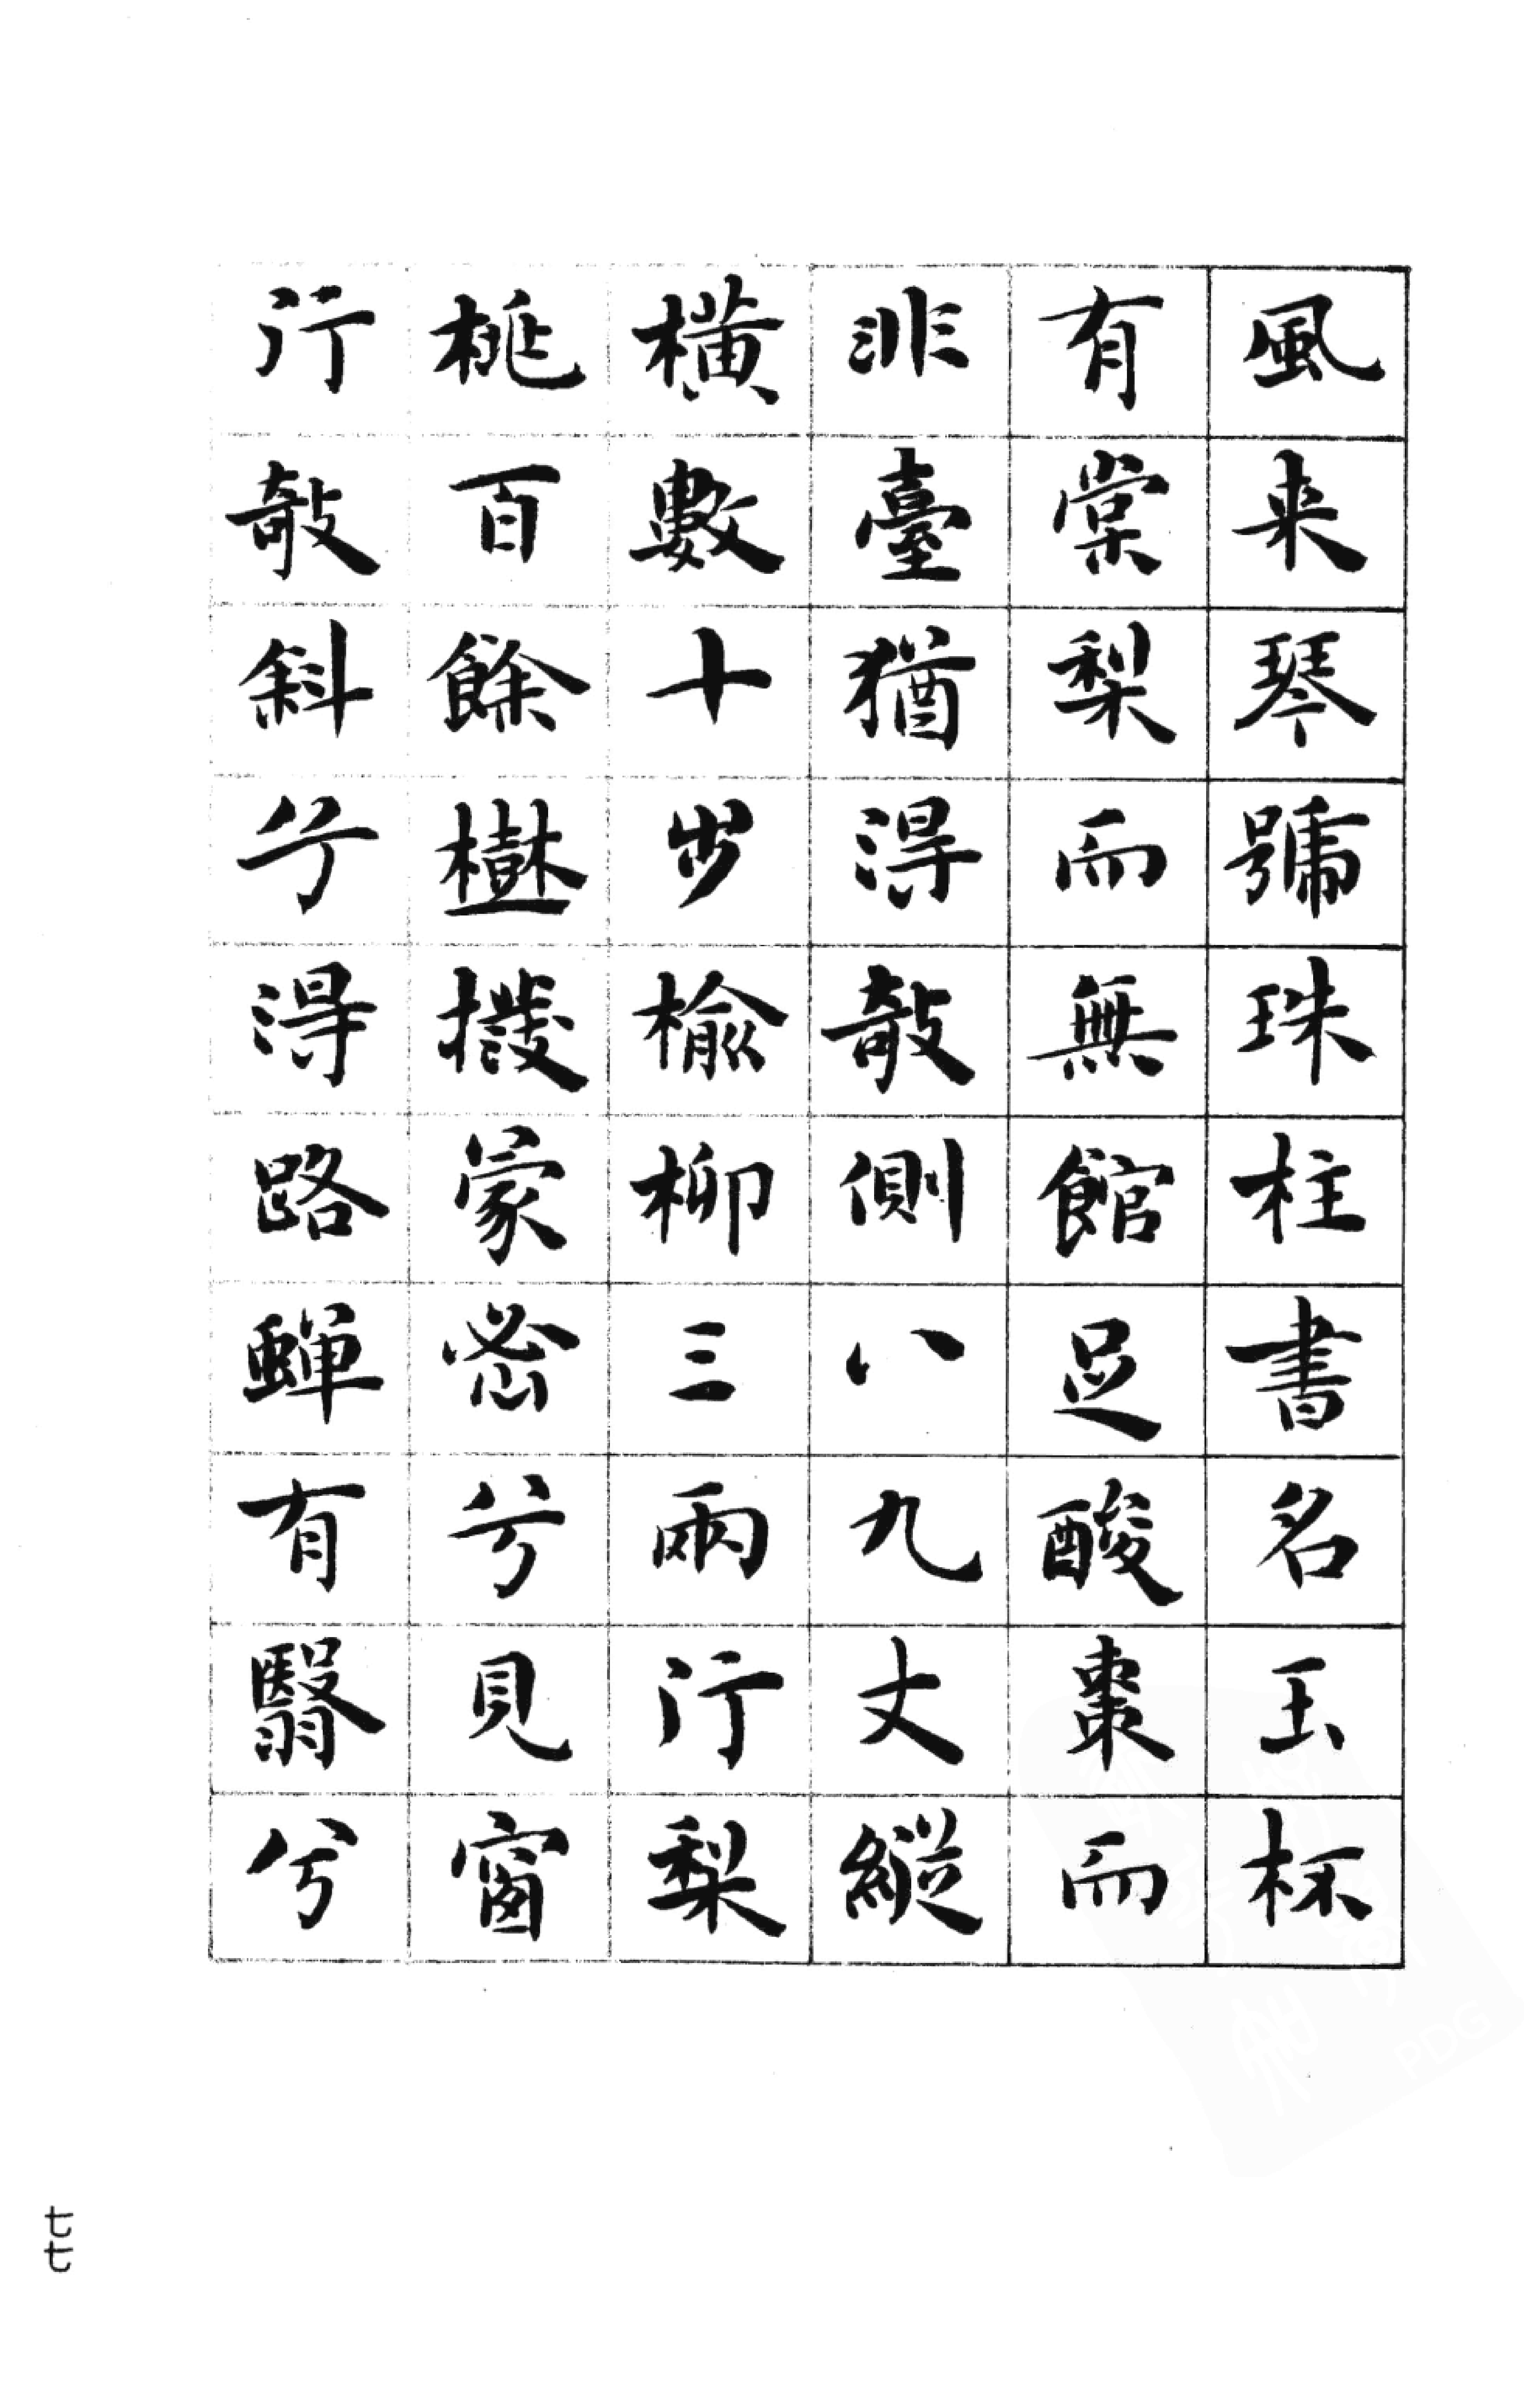 風来琴號珠柱書名玉杯
有棠梨而無館足酸棗而
非臺猶得敧側八九丈縱
橫數十步榆柳三兩行梨
桃百餘樹撥蒙密兮見窗
行敧斜兮得路蟬有翳兮
七七
PDG